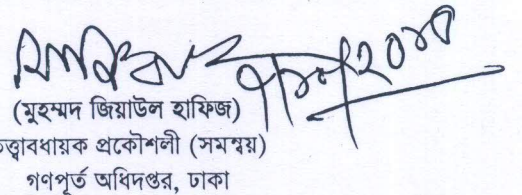 (মুহম্মদ জিয়াউল হাফিজ)
ত্ত্বাবধায়ক প্রকৌশলী (সমন্বয়)
গণপূর্ত অধিদপ্তর, ঢাকা